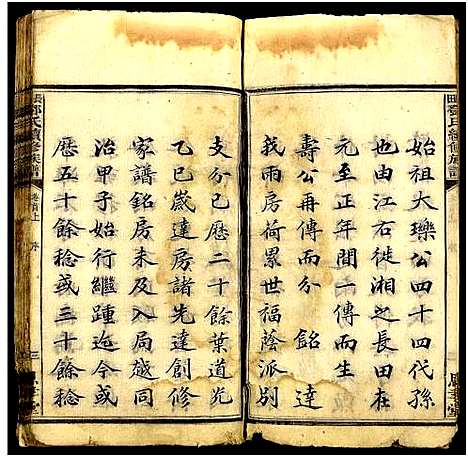 始祖大瓅公四十四代孫
也由江右徙湘之長田在
元至正年間一傳而生
壽公再傳而分 銘 達
我兩房荷累世福蔭派別
支分已歷二十餘葉道光
乙巳歲達房諸先達創修
家譜銘房未及入局越同
治甲子始行繼踵迄今或
歷五十餘稔或三十餘稔
鄧氏續修族譜
卷首上
序
三